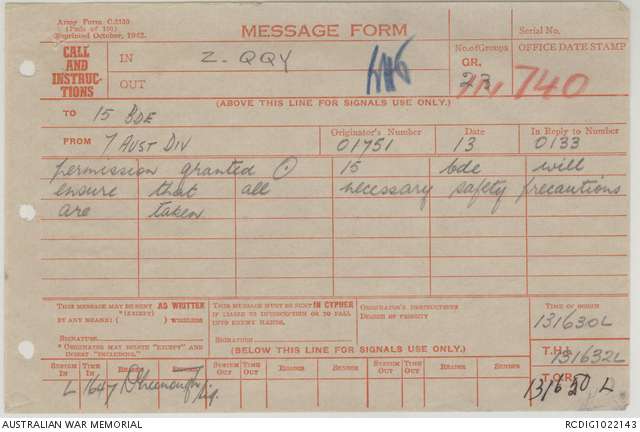 Army Form C.2130
(Pads of 100)
Reprinted October, 1942.
MESSAGE FORM
Serial No.
CALL AND INSTRUCTIONS
IN Z. QQY
OUT
No. of Groups
GR.
23
OFFICE DATE STAMP
740
(ABOVE THIS LINE FOR SIGNALS USE ONLY.)
TO 15 BDE
FROM 7 AUST DIV
Originator's Number
01751
Date
13
In Reply to
0133
permission granted ⊙ 15 bde will
ensure that all necessary safety precautions
are taken
THIS MESSAGE MAY BE SENT AS WRITTEN
*(EXCEPT)
BY ANY MEANS: ( ) WIRELESS
SIGNATURE
* ORIGINATOR MAY DELETE "EXCEPT" AND
INSERT "INCLUDING."
THIS MESSAGE MUST BE SENT IN CYPHER
IF LIABLE TO INTERCEPTION OR TO FALL
INTO ENEMY HANDS.
SIGNATURE
ORIGINATOR'S INSTRUCTIONS
DEGREE OF PRIORITY
TIME OF ORIGIN
131630L
(BELOW THIS LINE FOR SIGNALS USE ONLY.)
T.H.I.
131632L
SYSTEM IN TIME IN READER SENDER SYSTEM OUT TIME OUT READER SENDER SYSTEM OUT TIME OUT READER SENDER
T.O.R.
L 1647 Sig.
131650L
AUSTRALIAN WAR MEMORIAL
RCDIG1022143